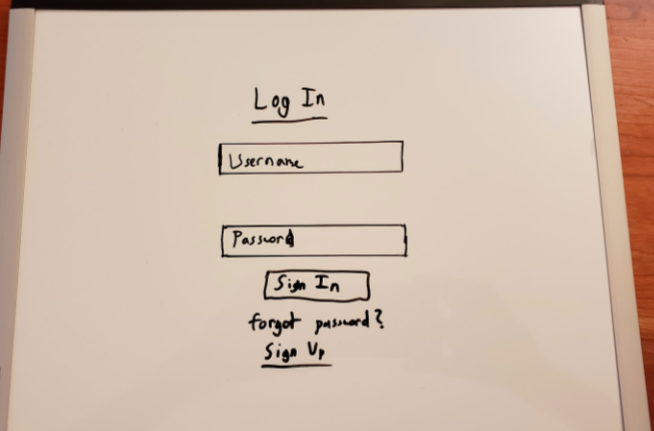 Log In
Username
Password
Sign In
forgot password?
Sign Up